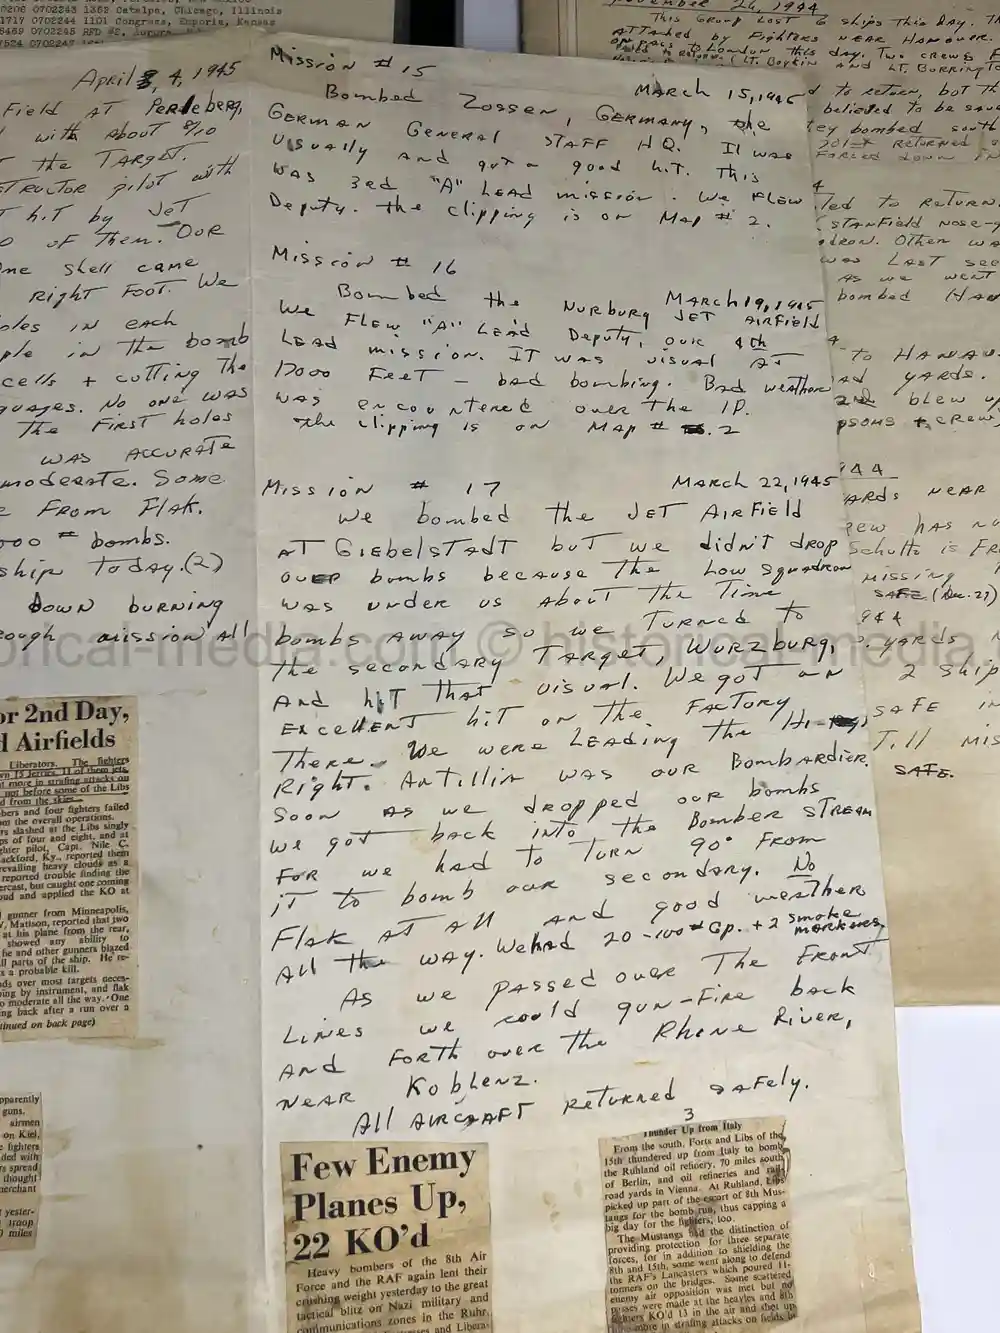 0206 0702243 1362 Catalpa, Chicago, Illinois
1717 0702244 1101 Congress, Emporia, Kansas
November 26, 1944
This Group Lost 6 ships This day.
Attacked by Fighters near Hanover.
April 4, 1945
Field at Perleberg,
with about 9/10
the Target.
structor pilot with
hit by Jet
of them. Our
one shell came
Right Foot. We
oles in each
ple in the bomb
cells + cutting the
guages. No one was
the First holes
was accurate
moderate. Some
From Flak.
000 # bombs.
ship today. (2)
down burning
rough mission all
Mission # 15
March 15, 1945
Bombed Zossen, Germany, the
German General Staff HQ. It was
Visually and got a good hit. This
was 3rd "A" Lead mission. We Flew
Deputy. the clipping is on Map # 2.
Mission # 16
March 19, 1945
Bombed the Nurburg Jet Airfield
We Flew "A" Lead Deputy, our 4th
Lead mission. It was visual at
17000 Feet - bad bombing. Bad weather
was encountered over the IP.
the clipping is on Map # 2
Mission # 17
March 22, 1945
We bombed the Jet Airfield
at Giebelstadt but we didn't drop
our bombs because the Low squadron
was under us about the Time
bombs away so we Turned to
the secondary Target, Wurzburg,
and hit that visual. We got an
excellent hit on the Factory
There. We were Leading the Hi-
Right. Antillin was our Bombardier.
Soon as we dropped our bombs
we got back into the Bomber Stream
for we had to turn 90° From
it to bomb our secondary. No
Flak at all and good weather
all the way. We had 20-100# Gp. + 2 smoke markers,
As we passed over The Front
Lines we could gun-fire back
and forth over the Rhine River,
near Koblenz.
All aircraft returned safely.
3
to return, but th
believed to be
ey bombed south
201st returned
Forced down
ted to return.
Stanfield nose-
dron. Other wa
was Last see
as we went
bombed Ha
to Hanau
yards.
2nd blew up
+ crew
944
ards near
rew has
Schultz is
missing
safe (Dec. 27)
944
yards
2 ship
safe in
Till mis
safe.
historical-media.com © historical-media
or 2nd Day,
d Airfields
Liberators. The fighters
wn 15 Jerries, 11 of them jets,
more in strafing attacks on
not before some of the Libs
d from the skies.
bers and four fighters failed
om the overall operations.
rs slashed at the Libs singly
ps of four and eight, and at
ghter pilot, Capt. Nile C.
ackford, Ky., reported them
revailing heavy clouds as a
reported trouble finding the
ercast, but caught one coming
oud and applied the KO at
gunner from Minneapolis,
Mattson, reported that two
at his plane from the rear,
showed any ability to
he and other gunners blazed
ll parts of the ship. He re-
s a probable kill.
ds over most targets neces-
ing by instrument, and flak
o moderate all the way. One
ng back after a run over a
tinued on back page)
pparently
guns.
airmen
on Kiel,
e fighters
ded with
rs spread
thought
erchant
yester-
troop
miles
Few Enemy
Planes Up,
22 KO'd
Heavy bombers of the 8th Air
Force and the RAF again lent their
crushing weight yesterday to the great
tactical blitz on Nazi military and
communications zones in the Ruhr.
Thunder Up from Italy
From the south, Forts and Libs of the
15th thundered up from Italy to bomb
the Ruhland oil refinery, 70 miles south
of Berlin, and oil refineries and rail-
road yards in Vienna. At Ruhland, Libs
picked up part of the escort of 8th Mus-
tangs for the bomb run, thus capping a
big day for the fighters, too.
The Mustangs had the distinction of
providing protection for three separate
forces, for in addition to shielding the
8th and 15th, some went along to defend
the RAF's Lancasters which poured 11-
tonners on the bridges. Some scattered
enemy air opposition was met but no
passes were made at the heavies and 8th
fighters KO'd 13 in the air and shot up
more in strafing attacks on fields in